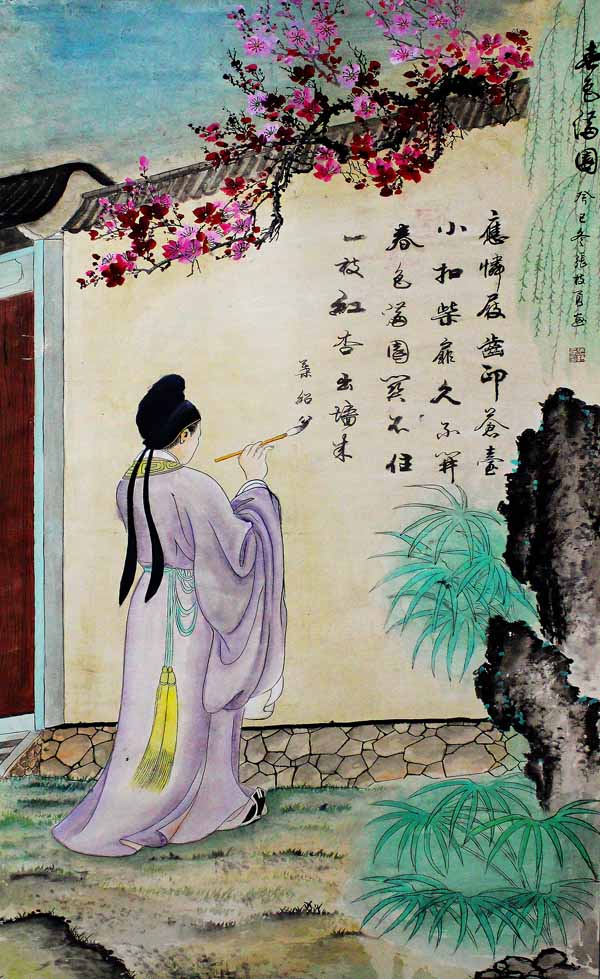 春色滿園
癸巳冬張枝勇画
應憐屐齒印蒼苔
小扣柴扉久不開
春色滿園関不住
一枝紅杏出墻来
葉紹翁